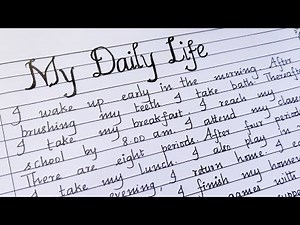 My Daily Life
I wake up early in the morning. After
brushing my teeth I take bath. Thereafter
I take my breakfast. I reach my
school by 8.00 am. I attend my class
There are eight periods. After four periods
I take my lunch. I also play in
evening, I return home. I
I finish my home
games with